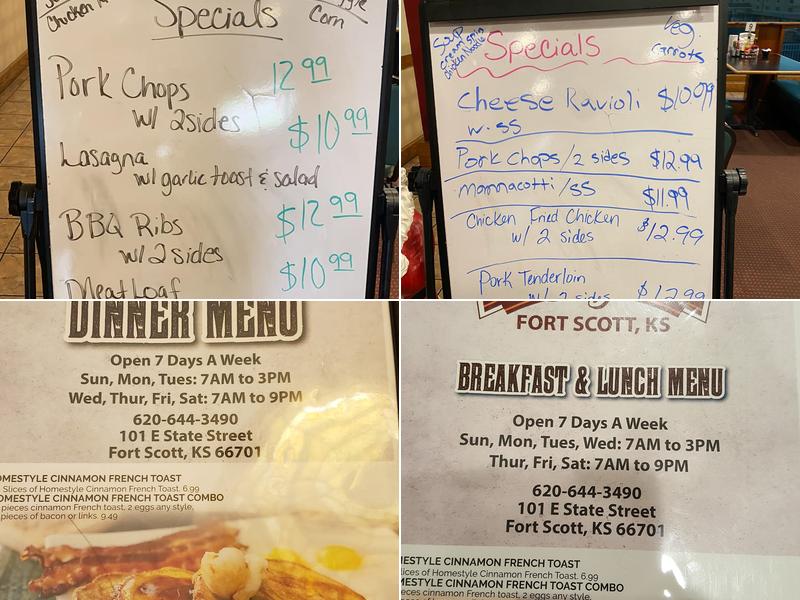 Specials
Chicken
Corn
Pork Chops 12 99
w/ 2 sides
Lasagna $10 99
w/ garlic toast & salad
BBQ Ribs $12 99
w/ 2 sides
Meat Loaf $10 99
Soup
cream spin
chicken Noodle
Specials
Veg.
Carrots
Cheese Ravioli $10.99
w. ss
Pork Chops/2 sides $12.99
Mannacotti/ss $11.99
Chicken Fried Chicken $12.99
w/ 2 sides
Pork Tenderloin
w/ 2 sides $12.99
DINNER MENU
Open 7 Days A Week
Sun, Mon, Tues: 7AM to 3PM
Wed, Thur, Fri, Sat: 7AM to 9PM
620-644-3490
101 E State Street
Fort Scott, KS 66701
OMESTYLE CINNAMON FRENCH TOAST
Slices of Homestyle Cinnamon French Toast. 6.99
OMESTYLE CINNAMON FRENCH TOAST COMBO
pieces cinnamon French toast, 2 eggs any style,
pieces of bacon or links. 9.49
FORT SCOTT, KS
BREAKFAST & LUNCH MENU
Open 7 Days A Week
Sun, Mon, Tues, Wed: 7AM to 3PM
Thur, Fri, Sat: 7AM to 9PM
620-644-3490
101 E State Street
Fort Scott, KS 66701
MESTYLE CINNAMON FRENCH TOAST
lices of Homestyle Cinnamon French Toast. 6.99
MESTYLE CINNAMON FRENCH TOAST COMBO
eces cinnamon French toast, 2 eggs any style,